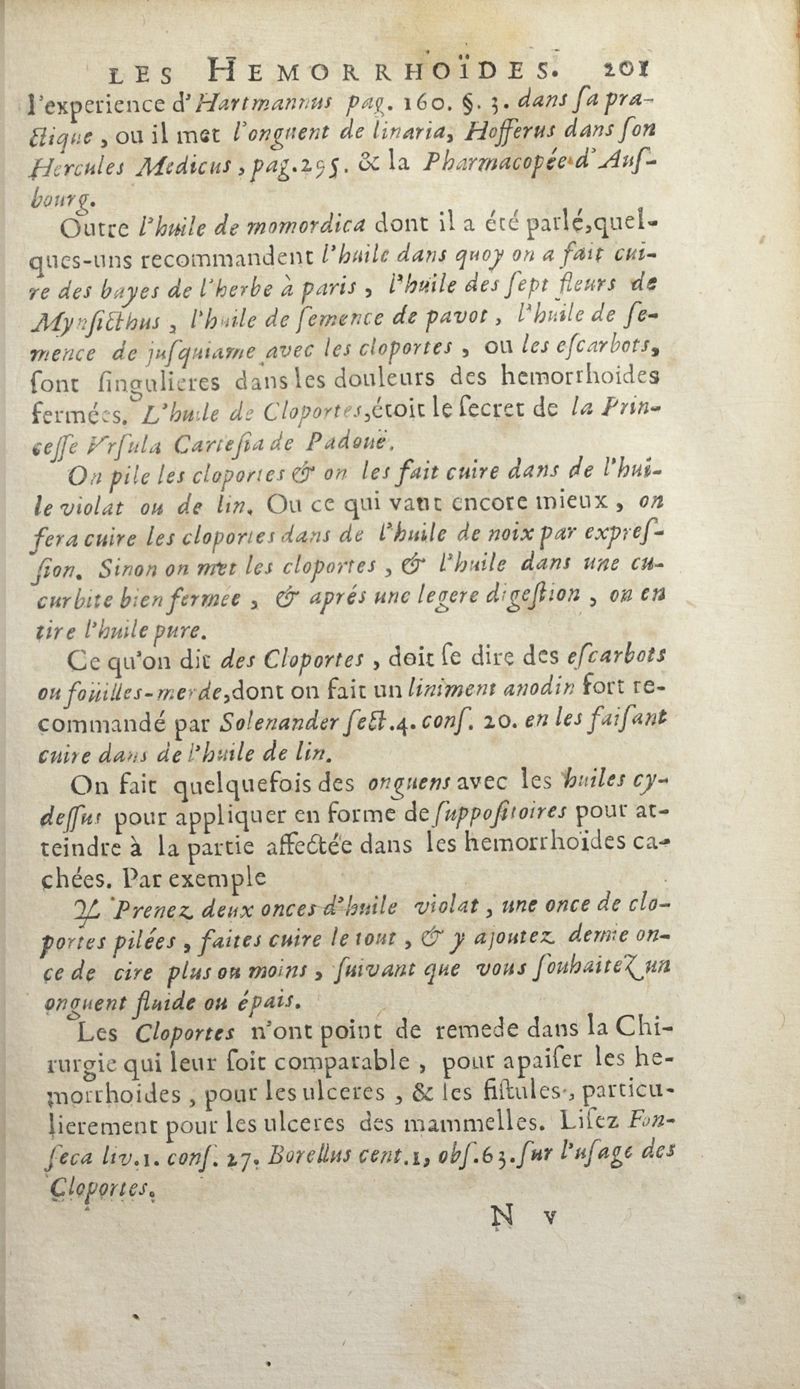 LES HEMORRHOÏDES. 201
l'experience d'Hartmannus pag. 160. §. 3. dans ſa pra-
ctique, ou il met l'onguent de linaria, Hofferus dans ſon
Hercules Medicus, pag. 295. & la Pharmacopée d'Auſ-
bourg.
Outre l'huile de momordica dont il a été parlé, quel-
ques-uns recommandent l'huile dans quoy on a fait cui-
re des bayes de l'herbe à paris, l'huile des ſept fleurs de
Mynſicthus, l'huile de ſemence de pavot, l'huile de ſe-
mence de juſquiame avec les cloportes, ou les eſcarbots,
ſont ſingulieres dans les douleurs des hemorrhoides
fermées. L'huile de Cloportes, étoit le ſecret de la Prin-
ceſſe Vrſula Carteſia de Padouë.
On pile les cloportes & on les fait cuire dans de l'hui-
le violat ou de lin. Ou ce qui vaut encore mieux, on
fera cuire les cloportes dans de l'huile de noix par expreſ-
ſion. Sinon on met les cloportes, & l'huile dans une cu-
curbite bien fermee, & aprés une legere digeſtion, on en
tire l'huile pure.
Ce qu'on dit des Cloportes, doit ſe dire des eſcarbots
ou foüilles-merde, dont on fait un liniment anodin fort re-
commandé par Solenander ſect. 4. conſ. 20. en les faiſant
cuire dans de l'huile de lin.
On fait quelquefois des onguens avec les huiles cy-
deſſus pour appliquer en forme de ſuppoſitoires pour at-
teindre à la partie affectée dans les hemorrhoides ca-
chées. Par exemple
♃ Prenez deux onces d'huile violat, une once de clo-
portes pilées, faites cuire le tout, & y ajoutez demie on-
ce de cire plus ou moins, ſuivant que vous ſouhaitez un
onguent fluide ou épais.
Les Cloportes n'ont point de remede dans la Chi-
rurgie qui leur ſoit comparable, pour apaiſer les he-
morrhoides, pour les ulceres, & les fiſtules, particu-
lierement pour les ulceres des mammelles. Liſez Fon-
ſeca liv. 1. conſ. 27. Borellus cent. 1, obſ. 63. ſur l'uſage des
Cloportes.
N v